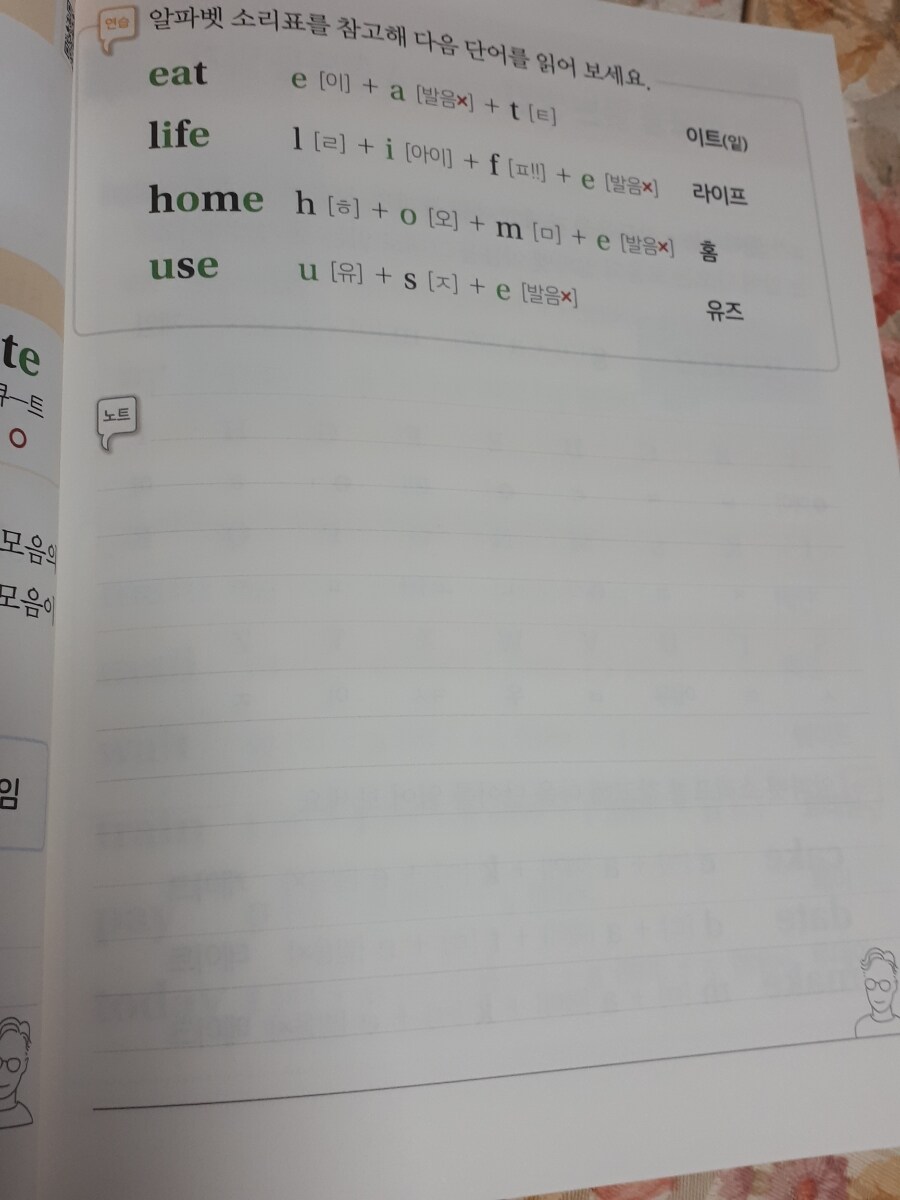 연습
알파벳 소리표를 참고해 다음 단어를 읽어 보세요.
eat e [이] + a [발음×] + t [ㅌ] 이트(잍)
life l [ㄹ] + i [아이] + f [ㅍ!!] + e [발음×] 라이프
home h [ㅎ] + o [오] + m [ㅁ] + e [발음×] 홈
use u [유] + s [ㅈ] + e [발음×] 유즈
노트
te
트
모음의
모음이
임